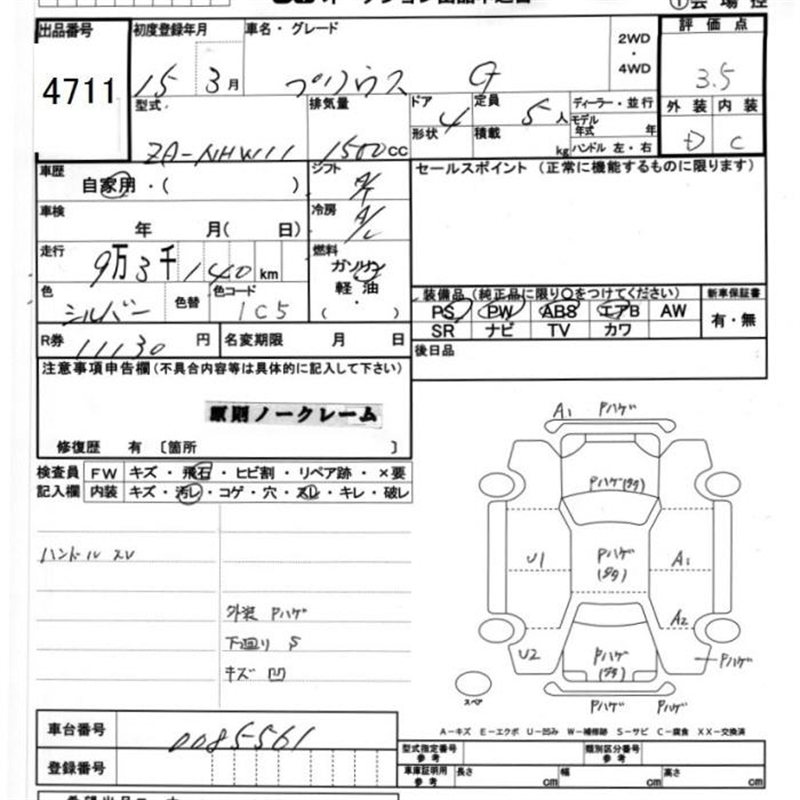 ①会場控
出品番号 初度登録年月 車名・グレード 2WD・4WD 評価点
4711 15 3月 プリウス G 3.5
型式 排気量 ドア形状 4 定員 5人 積載 kg ディーラー・並行 モデル年式 年 ハンドル 左・右 外装 内装
ZA-NHW11 1500cc D C
車歴 自家用・( ) シフト A/T セールスポイント (正常に機能するものに限ります)
車検 年 月( 日) 冷房 A/C
走行 9万3千140km 燃料 ガソリン 軽油 ( )
色 シルバー 色替 色コード 1C5
装備品 (純正品に限り○をつけてください) 新車保証書
PS PW ABS エアB AW 有・無
SR ナビ TV カワ
R券 11130円 名変期限 月 日
後日品
注意事項申告欄(不具合内容等は具体的に記入して下さい)
原則ノークレーム
修復歴 有 〔箇所 〕
検査員記入欄 FW キズ・飛石・ヒビ割・リペア跡・×要
内装 キズ・汚レ・コゲ・穴・スレ・キレ・破レ
ハンドル スレ
外装 Pハゲ
下廻り S
キズ 凹
A1 Pハゲ
Pハゲ(タタ)
U1 Pハゲ(タタ) A1
A2
U2 Pハゲ(タタ) Pハゲ
スペア
Pハゲ Pハゲ
A-キズ E-エクボ U-凹み W-補修跡 S-サビ C-腐食 XX-交換済
車台番号 0085561
登録番号
型式指定番号 参考 類別区分番号 参考
車庫証明用 参考 長さ cm 幅 cm 高さ cm